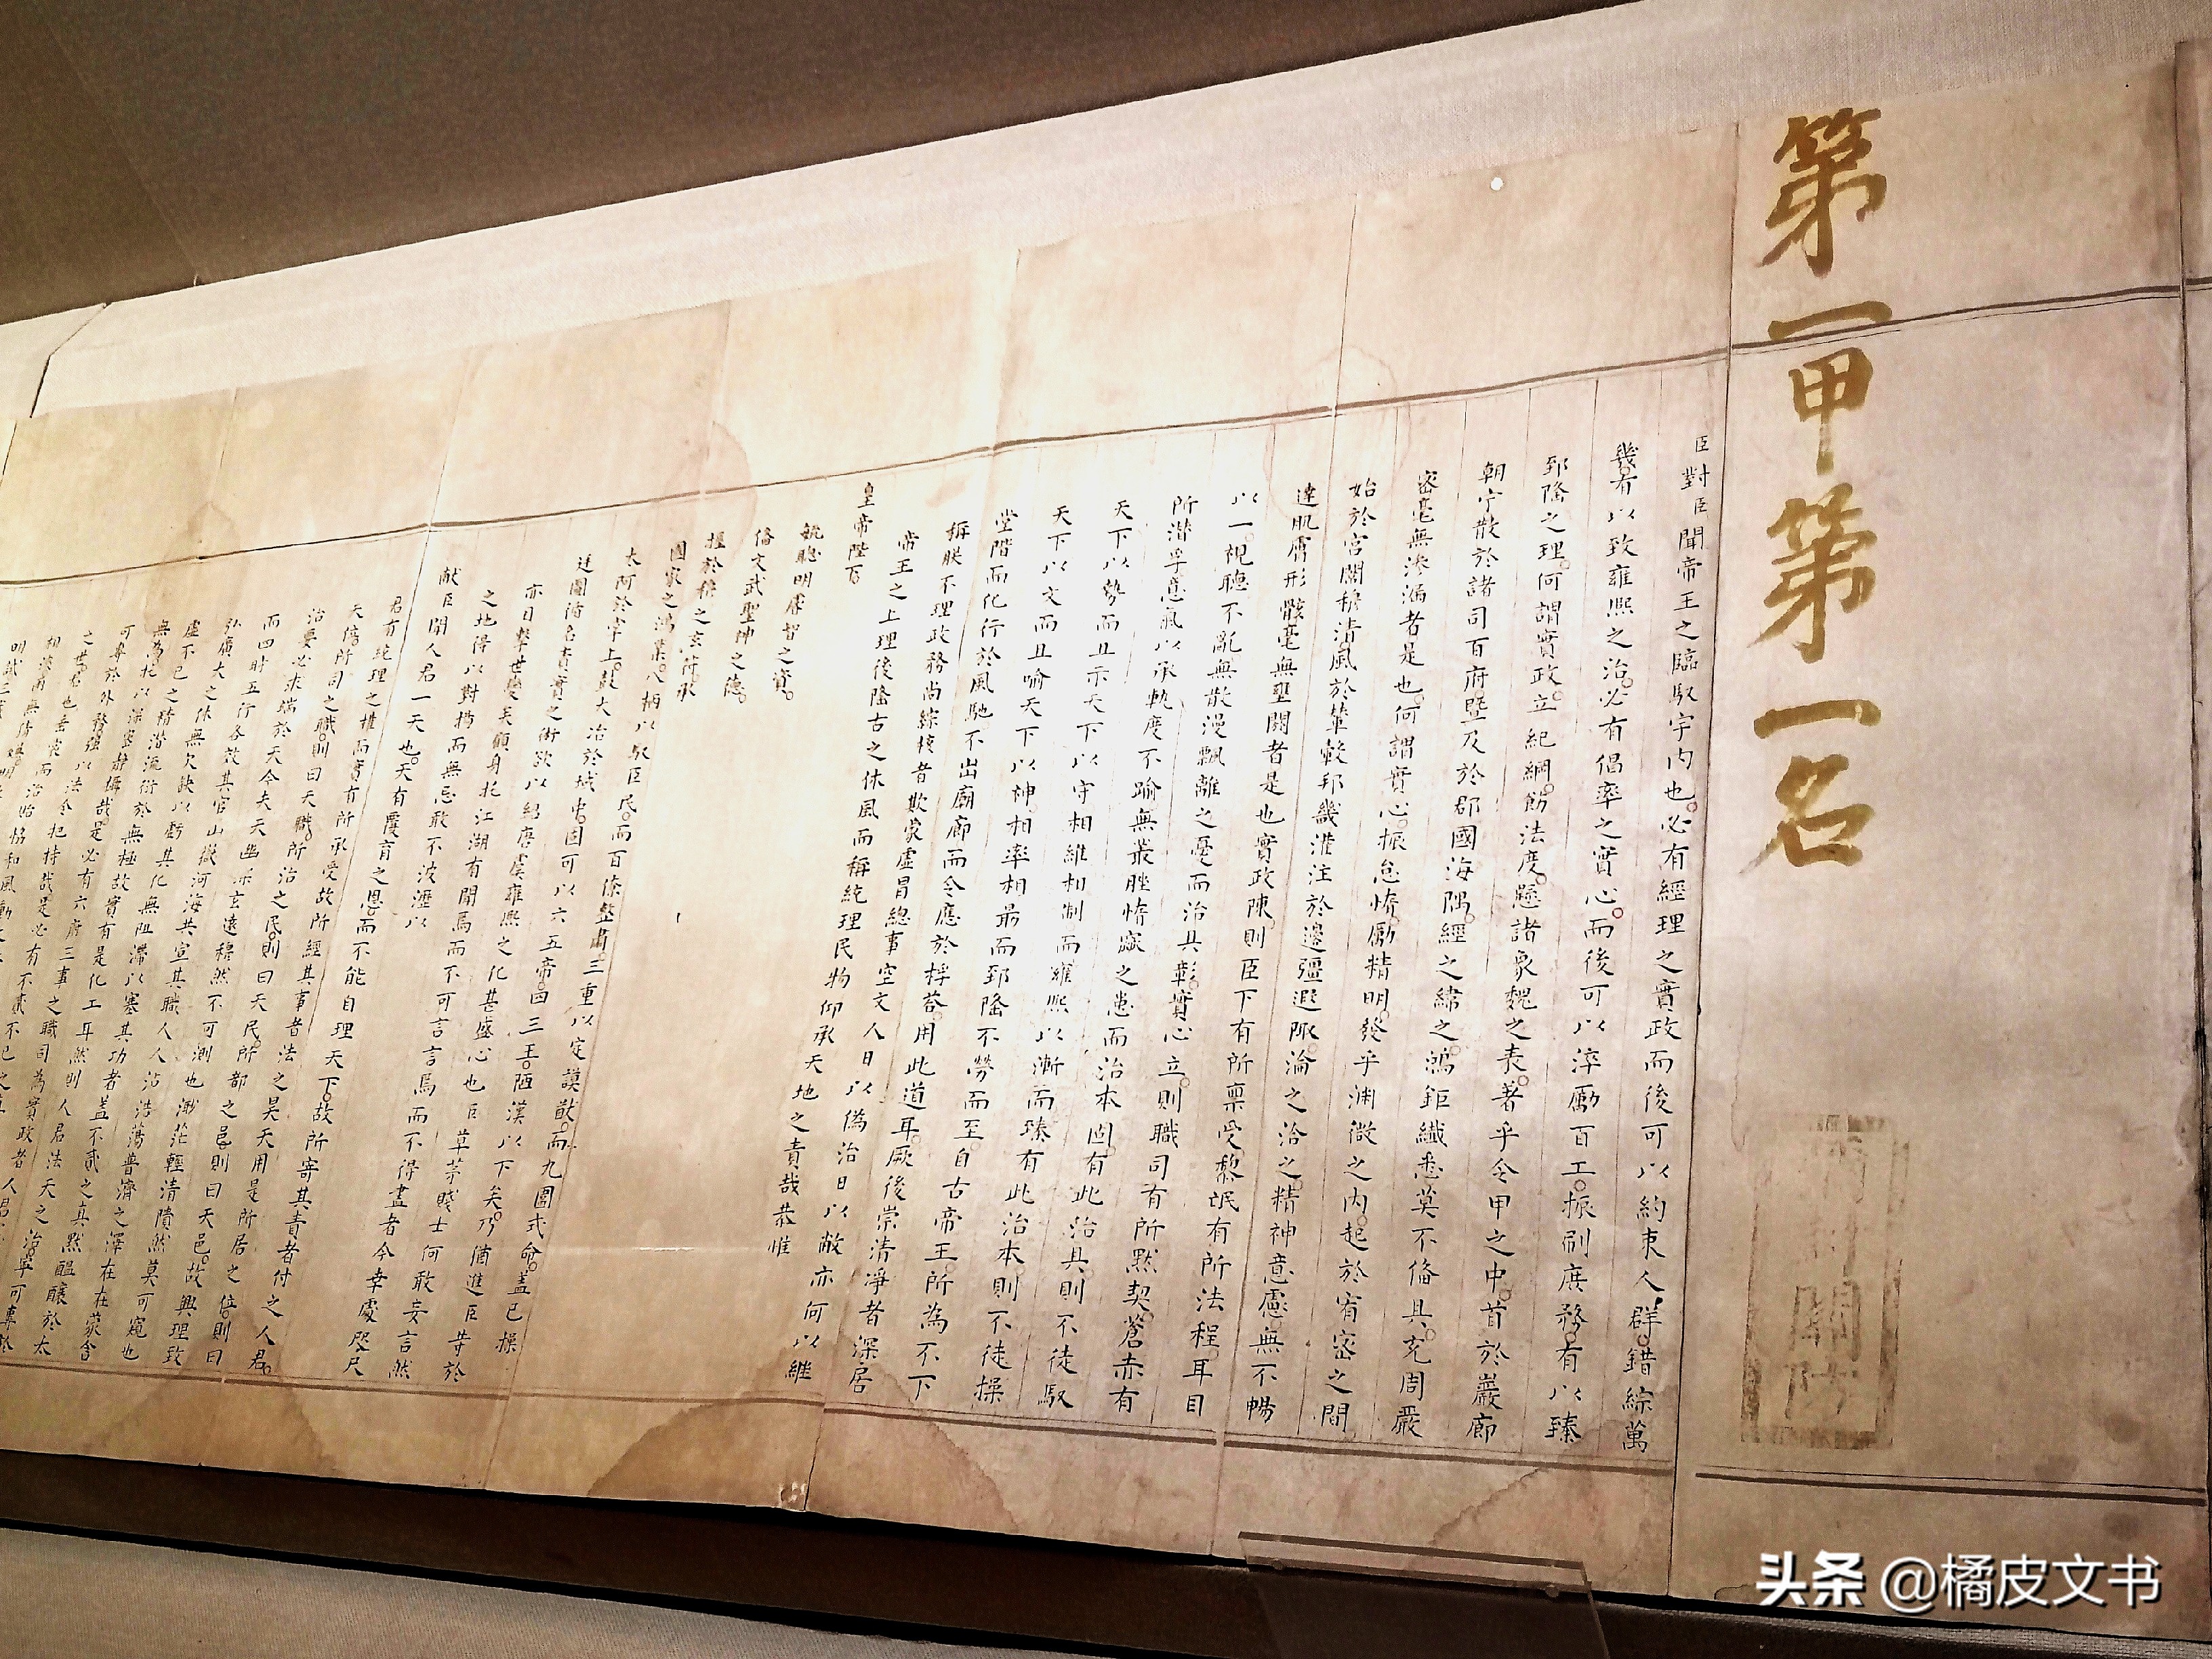 第一甲第一名
臣對臣聞帝王之臨馭宇內也必有經理之實政而後可以約束人群錯綜萬
幾有以致雍熙之治必有倡率之實心而後可以淬勵百工振刷庶務有以臻
郅隆之理何謂實政立紀綱飭法度懸諸象魏之表著乎令甲之中首於巖廊
朝宁散於諸司百府暨及於郡國海隅經之緯之鴻鉅纖悉莫不備具充周嚴
密毫無滲漏者是也何謂實心振怠惰勵精明發乎淵微之內起於宥密之間
始於宮闈穆清風於輦轂邦畿灌注於邊疆遐陬淪之洽之精神意慮無不暢
達肌膚形骸毫無壅閼者是也實政陳則臣下有所稟受黎氓有所法程耳目
以一視聽不亂無散漫飄離之憂而治具彰實心立則職司有所默契蒼赤有
所潛孚意氣以承軌度不踰無叢脞惰窳之患而治本固有此治具則不徒馭
天下以勢而且示天下以守相維相制而雍熙以漸而臻有此治本則不徒操
天下以文而且喻天下以神相率相勗而郅隆不勞而至自古帝王所為不下
堂階而化行於風馳不出廟廊而令應於桴答用此道耳厥後崇清淨者深居
稱朕不理政務尚綜核者欺蒙虛冒總事空文人日以偽治日以敝亦何以繼
帝王之上理後隆古之休風而稱統理民物仰承天地之責哉恭惟
皇帝陛下
毓聰明睿智之資
備文武聖神之德
握於穆之玄符承
國家之鴻業八柄以馭臣民而百僚整肅三重以定謨猷而九圍式命蓋已操
太阿於掌上鼓大冶於域中固可以六五帝四三王陋漢以下矣乃猶進臣等於
廷圖循名責實之術欲以紹唐虞雍熙之化甚盛心也臣草茅賤士何敢妄言然
亦目擊世變矣顧身托江湖有聞焉而不可言言焉而不得盡者今幸處咫尺
之地得以對揚而無忌敢不披瀝以
獻臣聞人君一天也天有覆育之恩而不能自理天下故所寄其責者付之人君
君有統理之權而實有所承受故所經其事者法之昊天用是所居之位則曰
天位所司之職則曰天職所治之民則曰天民所都之邑則曰天邑故興理致
治要必求端於天今夫天幽深玄遠穆然不可測也渺茫輕清隤然莫可窺也
而四時五行各效其官山嶽河海共宣其職人人沾浩蕩普濟之澤在在蒙含
弘廣大之休無欠缺以虧其化無阻滯以塞其功者蓋不貳之真默醞釀於太
虛不已之精潛流衍於無極故實有是化工耳然則人君法天之治寧可專於
無為托以深密靜攝哉是必有六府三事之職司為實政者人君
可專於外務強以法令把持哉是必有不貳不已之真
之世君也垂裳而治貽協和風動
頭条 @橘皮文书